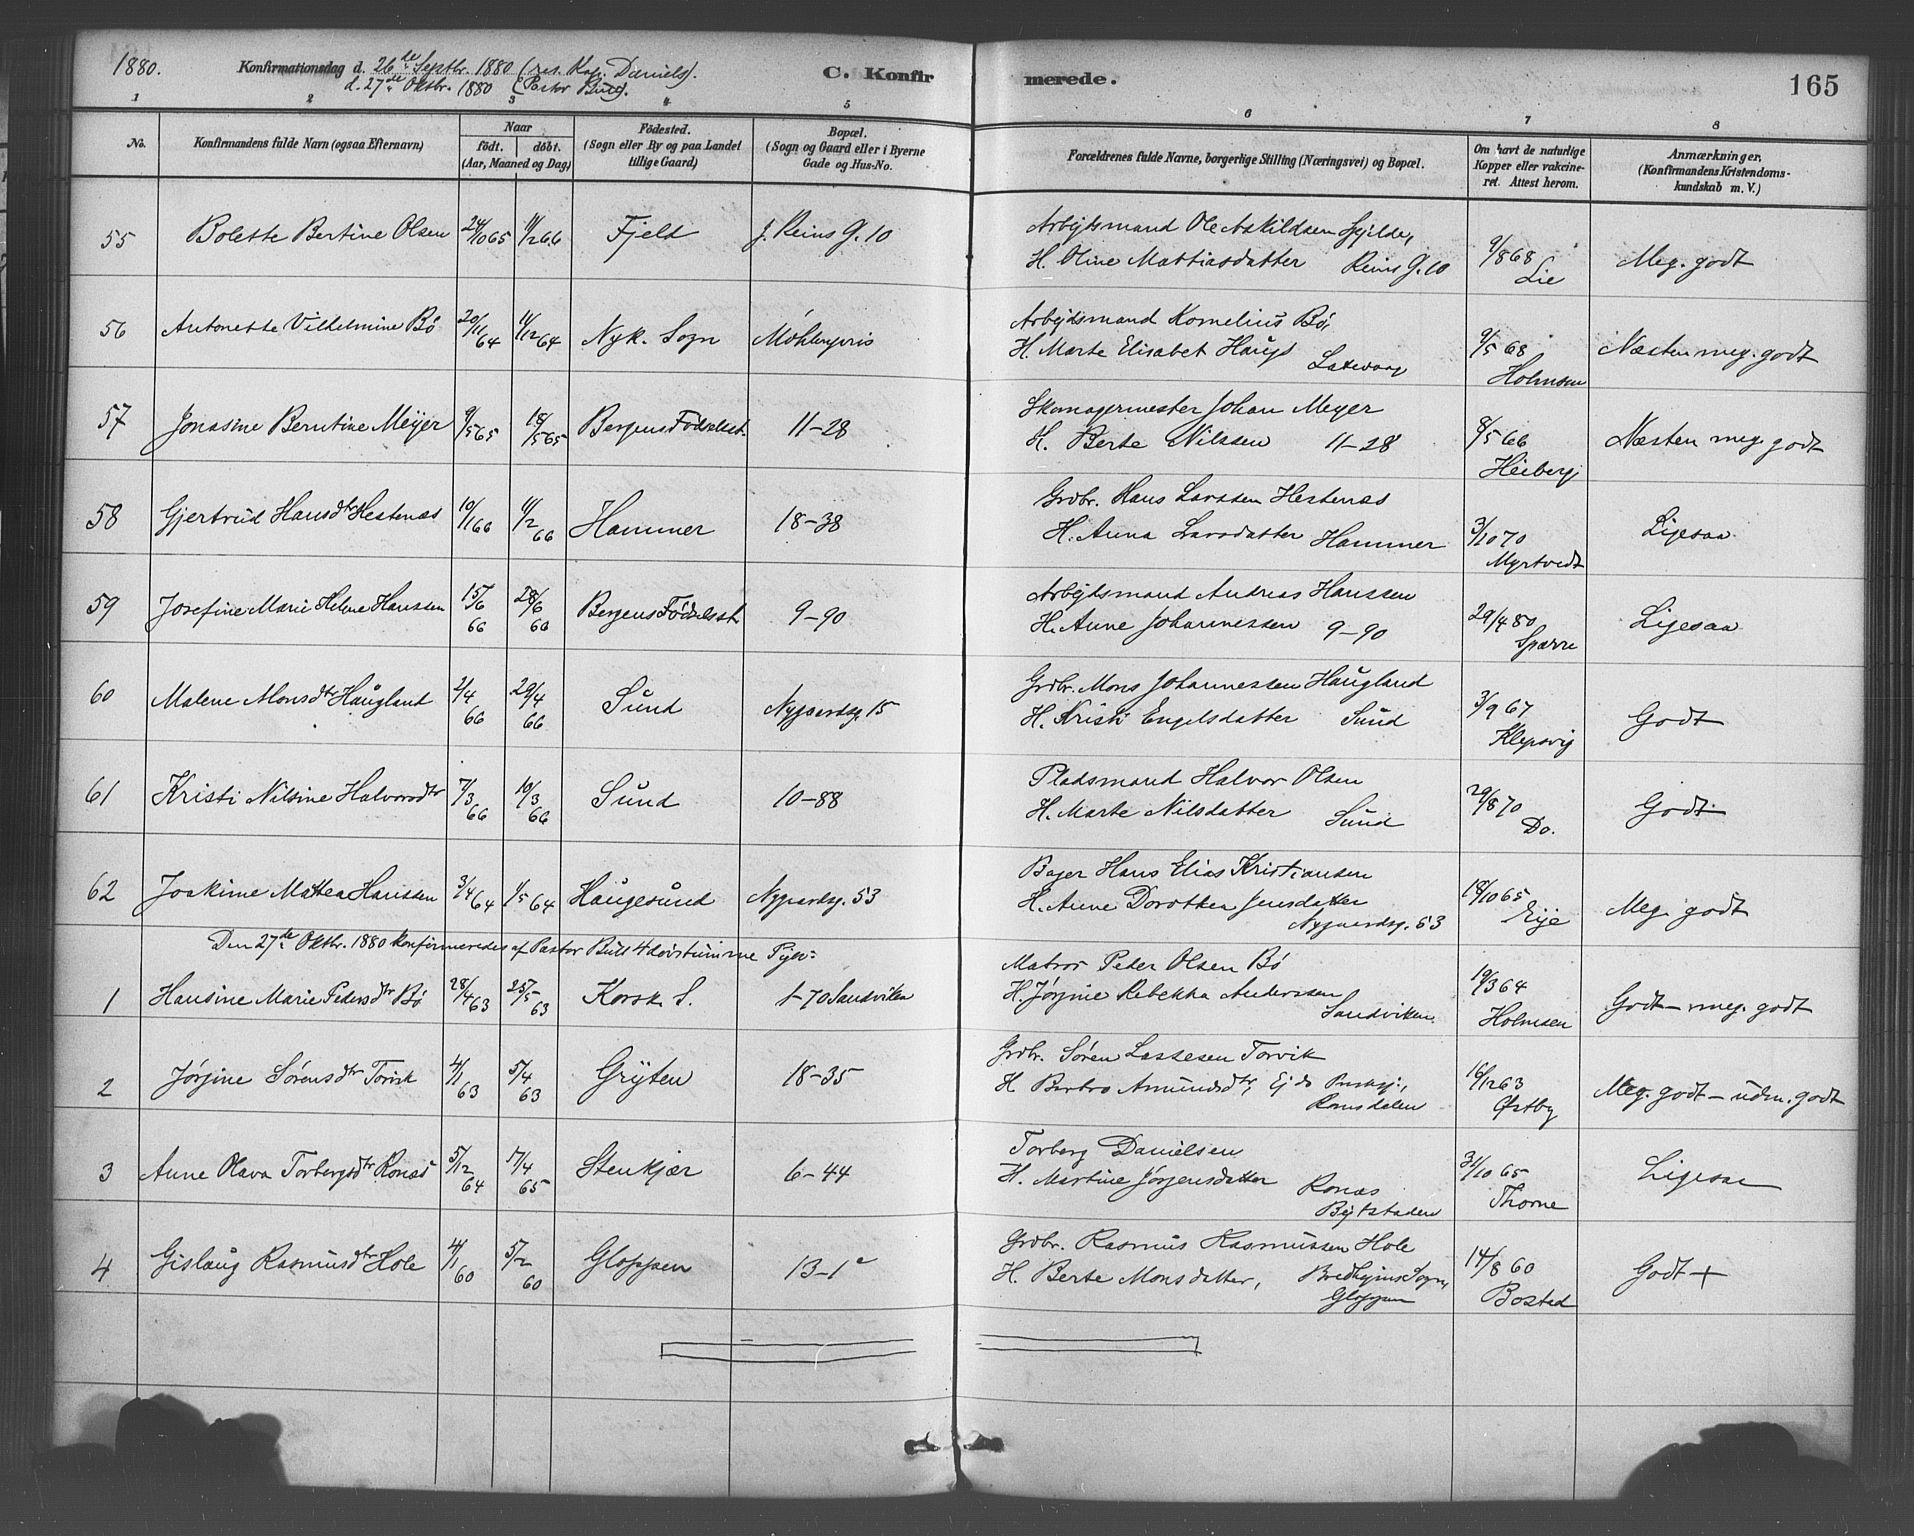 1880. Konfirmationsdag d. 26de Septbr. 1880 (res. Kap. Daniels).
d. 27de Oktbr. 1880 (Pastor Bull).
C. Konfirmerede.
165
1 2 3 4 5 6 7 8
No.
Konfirmandens fulde Navn (ogsaa Efternavn)
Naar
födt. döbt.
(Aar, Maaned og Dag)
Födested.
(Sogn eller By og paa Landet
tillige Gaard)
Bopæl.
(Sogn og Gaard eller i Byerne
Gade og Hus-No.
Forældrenes fulde Navne, borgerlige Stilling (Næringsvei) og Bopæl.
Om havt de naturlige
Kopper eller vakcine-
ret. Attest herom.
Anmærkninger.
(Konfirmandens Kristendoms-
kundskab m. V.)
55 Bolette Bertine Olsen 24/10 65 11/2 66 Fjeld J. Reins G. 10 Arbejdsmand Ole Askildsen Spjilde, 9/8 68 Meg. godt
H. Oline Mattiasdatter Reins G. 10 Lie
56 Antonette Vilhelmine Bö 20/11 64 11/12 64 Nyk. Sogn Möhlenpris Arbejdsmand Kornelius Bö, 9/5 68 Næsten meg. godt
H. Marte Elisabet Haugs Laxevaag Holmsen
57 Jonasine Berntine Meÿer 9/5 65 18/5 65 Bergens Födselsst. 11-28 Skomagermester Johan Meyer 8/5 66 Næsten meg. godt
H. Berte Nilssen 11-28 Heiberg
58 Gjertrud Hansdtr Hestenæs 10/1 66 11/2 66 Hammer 18-38 Grdbr. Hans Larssen Hestenæs 3/10 70 Ligesaa
H. Anna Larsdatter Hammer Myrtvedt
59 Josefine Marie Helene Hanssen 15/6 66 28/6 66 Bergens Födselsst. 9-90 Arbejdsmand Andreas Hanssen 29/4 80 Ligesaa
H. Anne Johannessen 9-90 Sparre
60 Malene Monsdtr Haugland 2/4 66 29/4 66 Sund Nygaardsg. 15 Grdbr. Mons Johannessen Haugland 3/9 67 Godt
H. Kristi Engelsdatter Sund Klepsvig
61 Kristi Nilsine Halvorsdtr 7/3 66 10/3 66 Sund 10-88 Pladsmand Halvor Olsen 29/8 70 Godt.
H. Marte Nilsdatter Sund Do.
62 Joakime Mattea Hanssen 3/4 64 1/5 64 Haugesund Nygaardsg. 53 Bager Hans Elias Kristiansen 18/10 65 Meg. godt
H. Anne Dorothea Jensdatter Nygaardsg. 53 Eije
Den 27de Oktbr. 1880 konfirmeredes af Pastor Bull 4 dövstumme Piger:
1 Hansine Marie Pedersdtr Bö 28/4 63 25/5 63 Korsk. S. 1-70 Sandviken Matros Peder Olsen Bö 19/3 64 Godt - meg. godt
H. Jørgine Rebekka Anderssen Sandviken. Holmsen
2 Jørgine Sørensdtr Torvik 4/1 63 5/4 63 Grÿten 18-35 Grdbr. Søren Lassesen Torvik 16/12 63 Meg. godt - udm. godt
H. Barbro Amundsdtr, Ejds Præstegj:, Romsdalen Østby
3 Anne Olava Torbergsdtr Ronæs 5/12 64 17/4 65 Stenkjær 6-44 Torberg Danielsen 31/10 65 Ligesaa
H. Martine Jørgensdatter Ronæs Thorne
Bejtstaden
4 Gislaug Rasmusdtr Hole 4/1 60 5/2 60 Gloppen 13-1c Grdbr. Rasmus Rasmussen Hole 14/8 60 Godt +
H. Berte Monsdatter, Bredhejms Sogn, Bosted
Gloppen